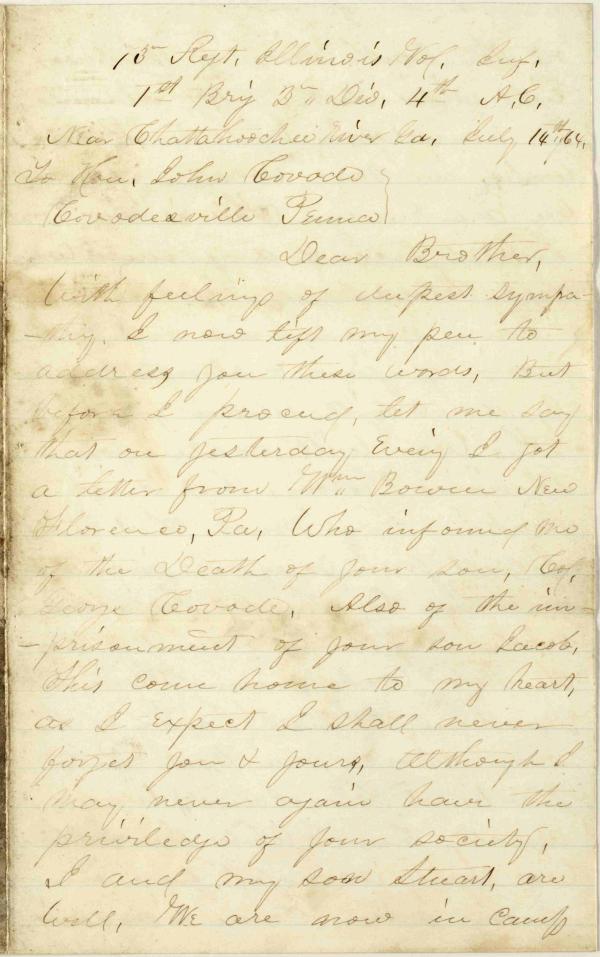 75 Regt. Illinois Vol. Inf.
1st Brig 3" Div, 4th A.C.
Near Chattahoochee River Ga, July 14th, 64.
To Hon. John Covode
Covodesville Penna
Dear Brother,
With feelings of deepest sympa-
-thy. I now lift my pen to
address you these words, But
before I proceed, let me say
that on yesterday Eveing I got
a letter from Wm Bowen New
Florence, Pa, Who informed me
of the Death of your son, Col,
George Covode, Also of the im-
-prisonment of your son Jacob,
This come home to my heart,
as I Expect I shall never
forget you & yours, Although I
May never again have the
priviledge of your society,
I and my son Stuart, are
well, We are now in camp